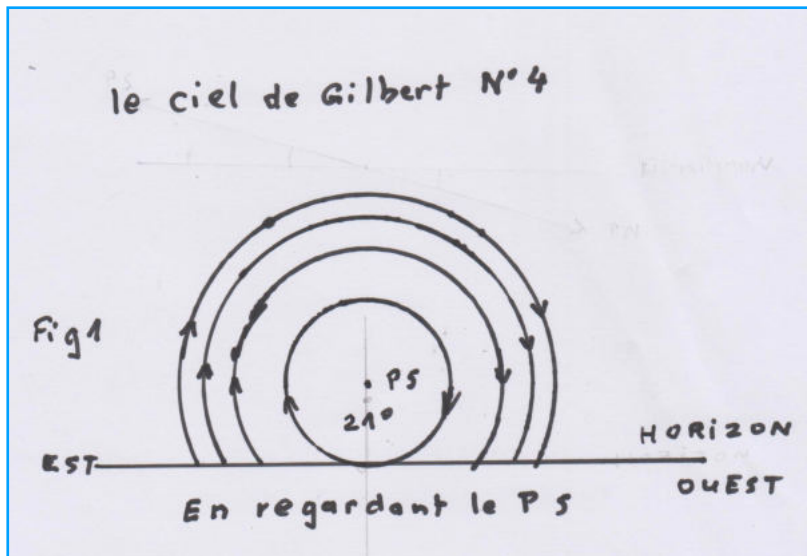 le ciel de Gilbert N°4
Fig 1
PS
21°
HORIZON
EST
OUEST
En regardant le PS